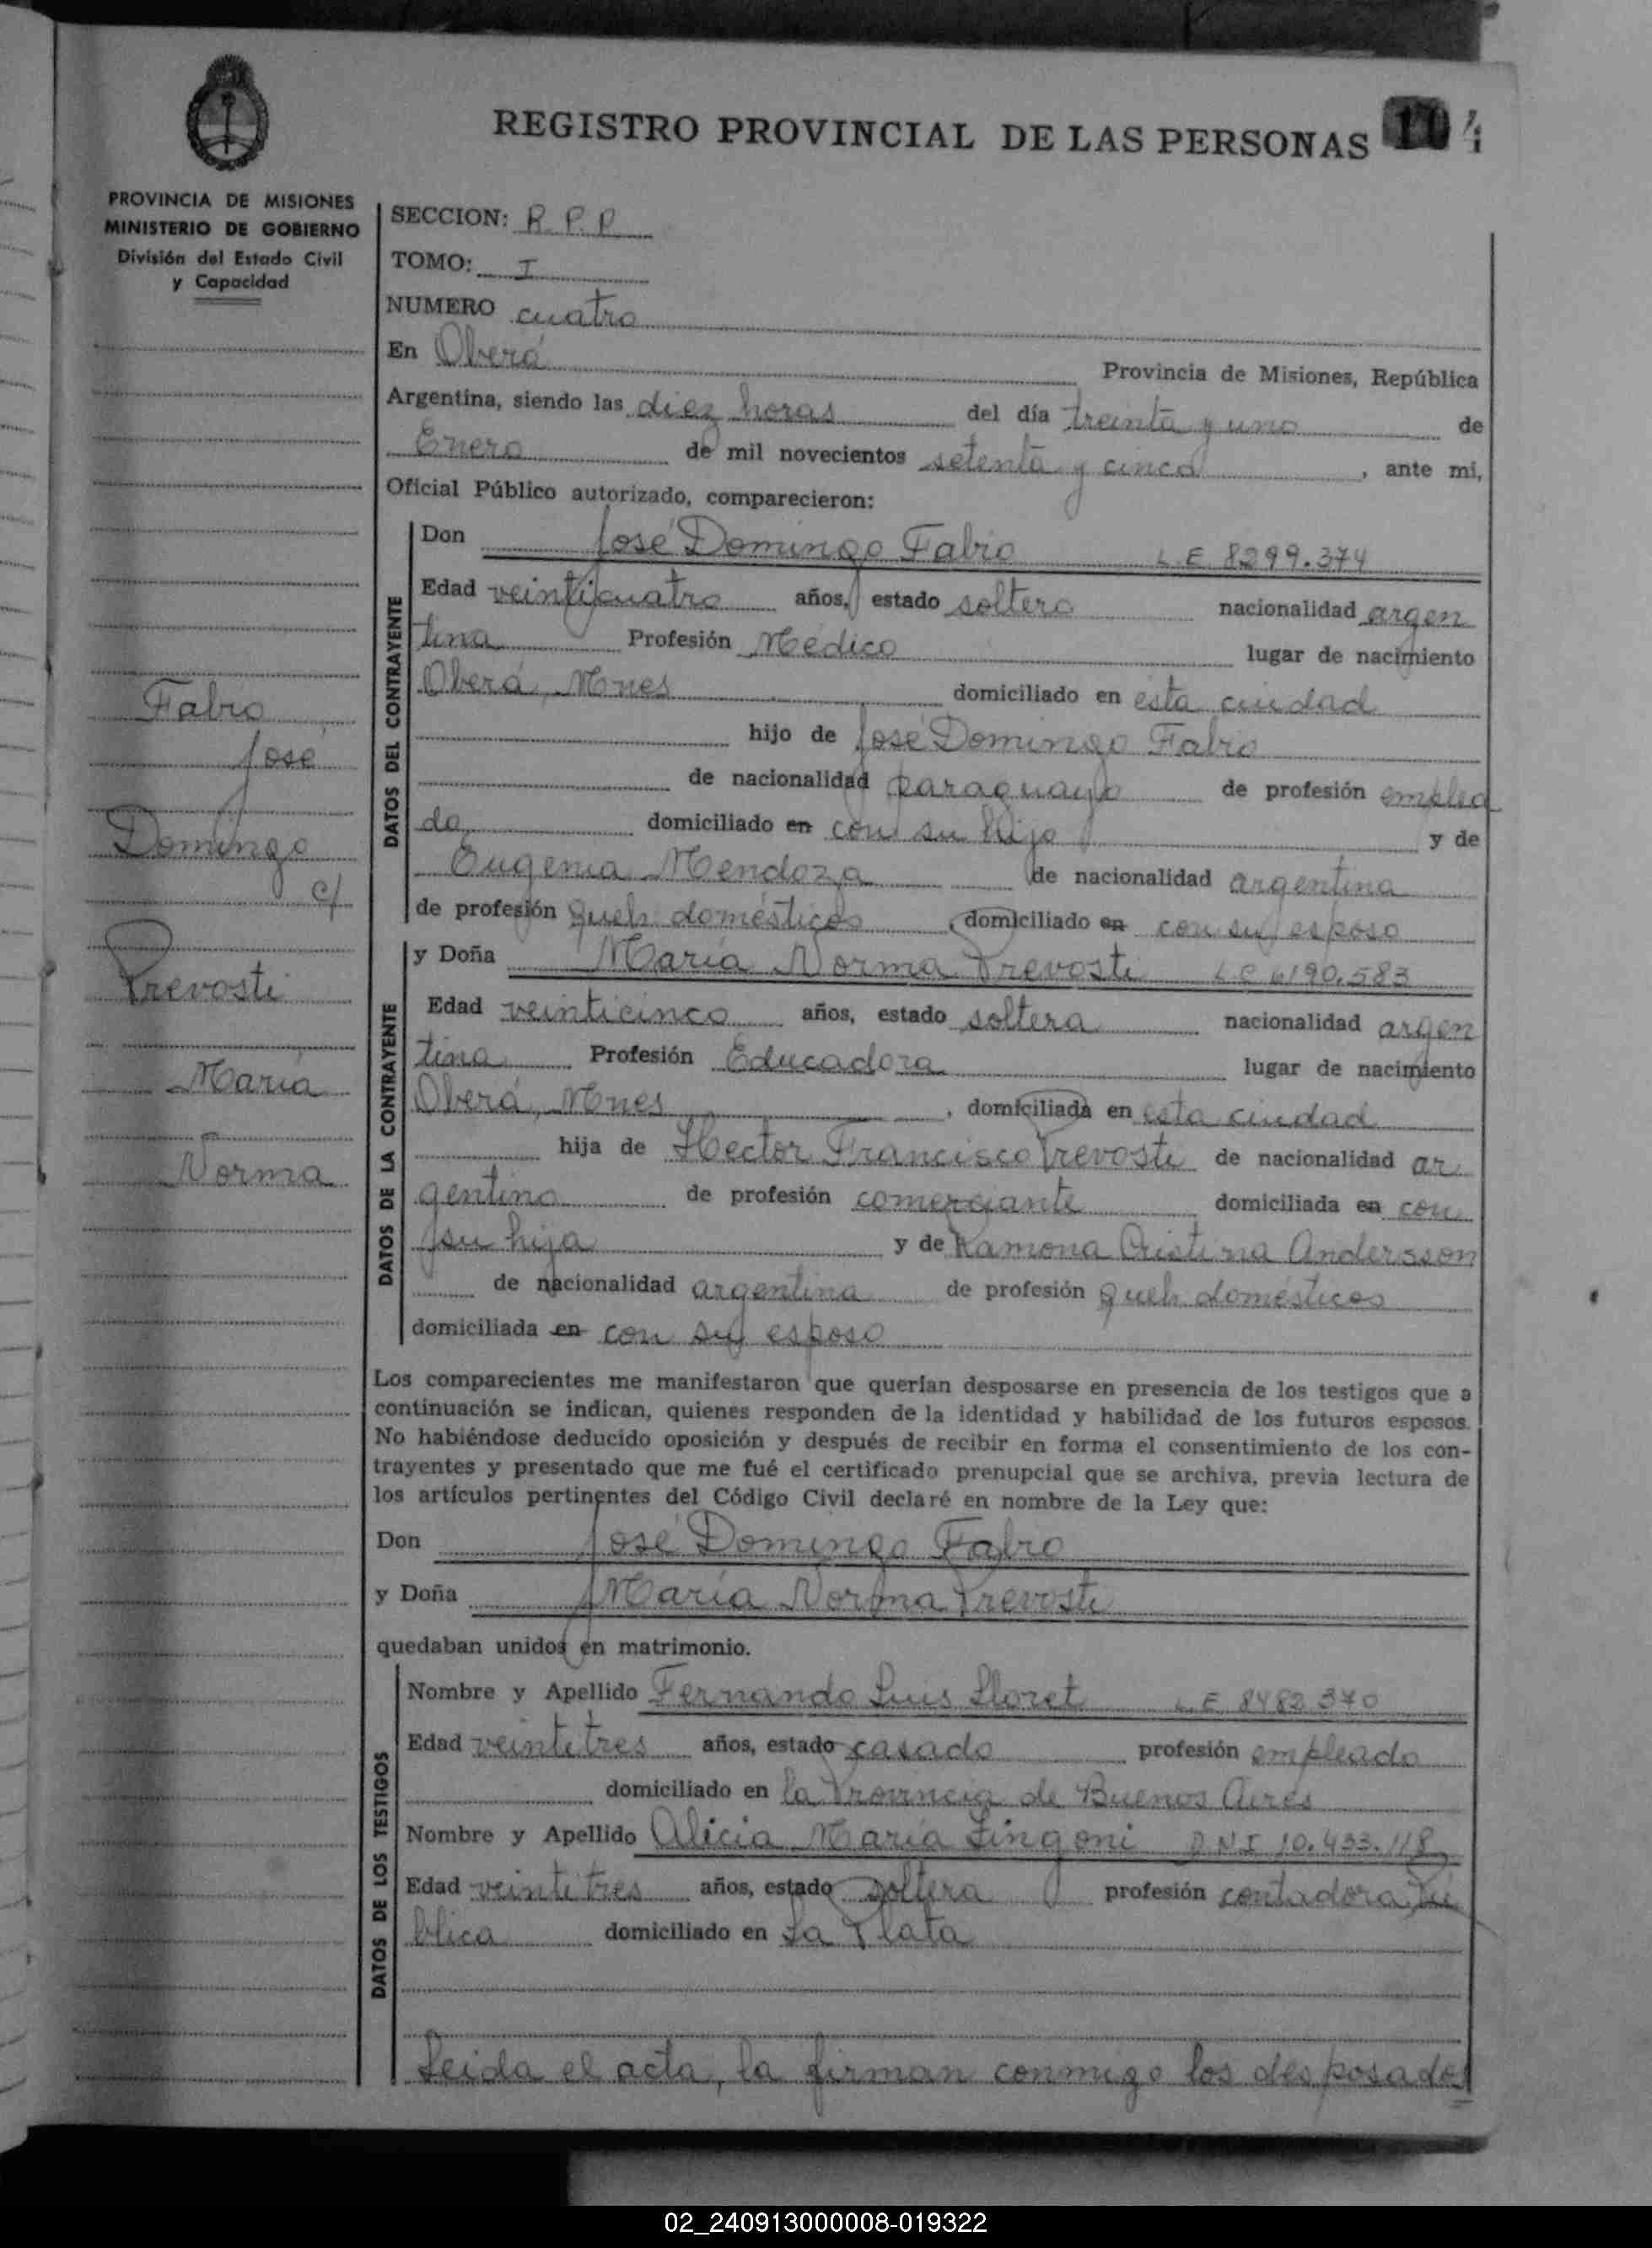 REGISTRO PROVINCIAL DE LAS PERSONAS
PROVINCIA DE MISIONES
MINISTERIO DE GOBIERNO
División del Estado Civil
y Capacidad
SECCION: R.P.P
TOMO: I
NUMERO cuatro
En Oberá Provincia de Misiones, República
Argentina, siendo las diez horas del día treinta y uno de
Enero de mil novecientos setenta y cinco, ante mi,
Oficial Público autorizado, comparecieron:
DATOS DEL CONTRAYENTE
Don José Domingo Fabio L.E 8299.374
Edad veinticuatro años, estado soltero nacionalidad argen
tina Profesión Médico lugar de nacimiento
Oberá, Mnes domiciliado en esta ciudad
hijo de José Domingo Fabio
de nacionalidad paraguayo de profesión emplea
do domiciliado en con su hijo y de
Eugenia Mendoza de nacionalidad argentina
de profesión queh domésticos, domiciliado en con su esposo
DATOS DE LA CONTRAYENTE
y Doña María Norma Prevosti L.C 6190.583
Edad veinticinco años, estado soltera nacionalidad argen
tina Profesión Educadora lugar de nacimiento
Oberá, Mnes, domiciliada en esta ciudad
hija de Hector Francisco Prevosti de nacionalidad ar
gentino de profesión comerciante domiciliada en con
su hija y de Ramona Cristina Andersson
de nacionalidad argentina de profesión queh domésticos
domiciliada en con su esposo
Fabio
José
Domingo
c/
Prevosti
María
Norma
Los comparecientes me manifestaron que querían desposarse en presencia de los testigos que a
continuación se indican, quienes responden de la identidad y habilidad de los futuros esposos.
No habiéndose deducido oposición y después de recibir en forma el consentimiento de los con-
trayentes y presentado que me fué el certificado prenupcial que se archiva, previa lectura de
los artículos pertinentes del Código Civil declaré en nombre de la Ley que:
Don José Domingo Fabio
y Doña María Norma Prevosti
quedaban unidos en matrimonio.
DATOS DE LOS TESTIGOS
Nombre y Apellido Fernando Luis Lloret L.E 8482370
Edad veintitres años, estado casado profesión empleado
domiciliado en la Provincia de Buenos Aires
Nombre y Apellido Alicia María Zingoni D.N.I 10.433.118
Edad veintitres años, estado soltera profesión contadora Pú
blica domiciliado en La Plata
Leida el acta, la firman conmigo los desposados
02_240913000008-019322